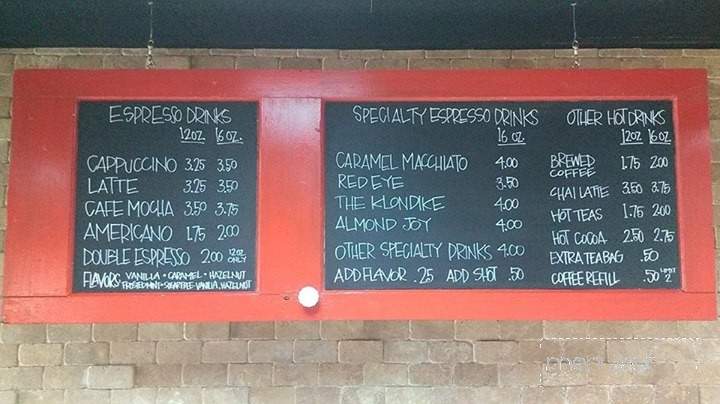 ESPRESSO DRINKS
12OZ. 16OZ.
CAPPUCCINO 3.25 3.50
LATTE 3.25 3.50
CAFE MOCHA 3.50 3.75
AMERICANO 1.75 2.00
DOUBLE ESPRESSO 2.00 12OZ ONLY
FLAVORS: VANILLA • CARAMEL • HAZELNUT
FROSTED MINT • SUGARFREE-VANILLA, HAZELNUT
SPECIALTY ESPRESSO DRINKS
16 OZ
CARAMEL MACCHIATO 4.00
RED EYE 3.50
THE KLONDIKE 4.00
ALMOND JOY 4.00
OTHER SPECIALTY DRINKS 4.00
ADD FLAVOR .25 ADD SHOT .50
OTHER HOT DRINKS
12OZ 16OZ
BREWED COFFEE 1.75 2.00
CHAI LATTE 3.50 3.75
HOT TEAS 1.75 2.00
HOT COCOA 2.50 2.75
EXTRA TEABAG .50
COFFEE REFILL .50 LIMIT 2